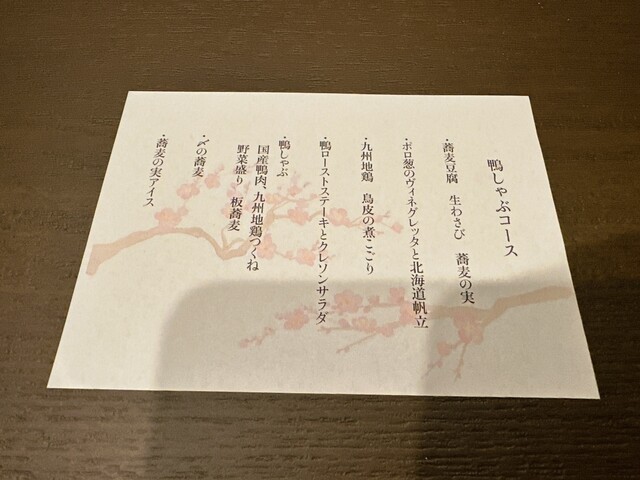 鴨しゃぶコース
・蕎麦豆腐　生わさび　蕎麦の実
・ポロ葱のヴィネグレッタと北海道帆立
・九州地鶏　鳥皮の煮こごり
・鴨ローストステーキとクレソンサラダ
・鴨しゃぶ
国産鴨肉、九州地鶏つくね
野菜盛り、板蕎麦
・〆の蕎麦
・蕎麦の実アイス